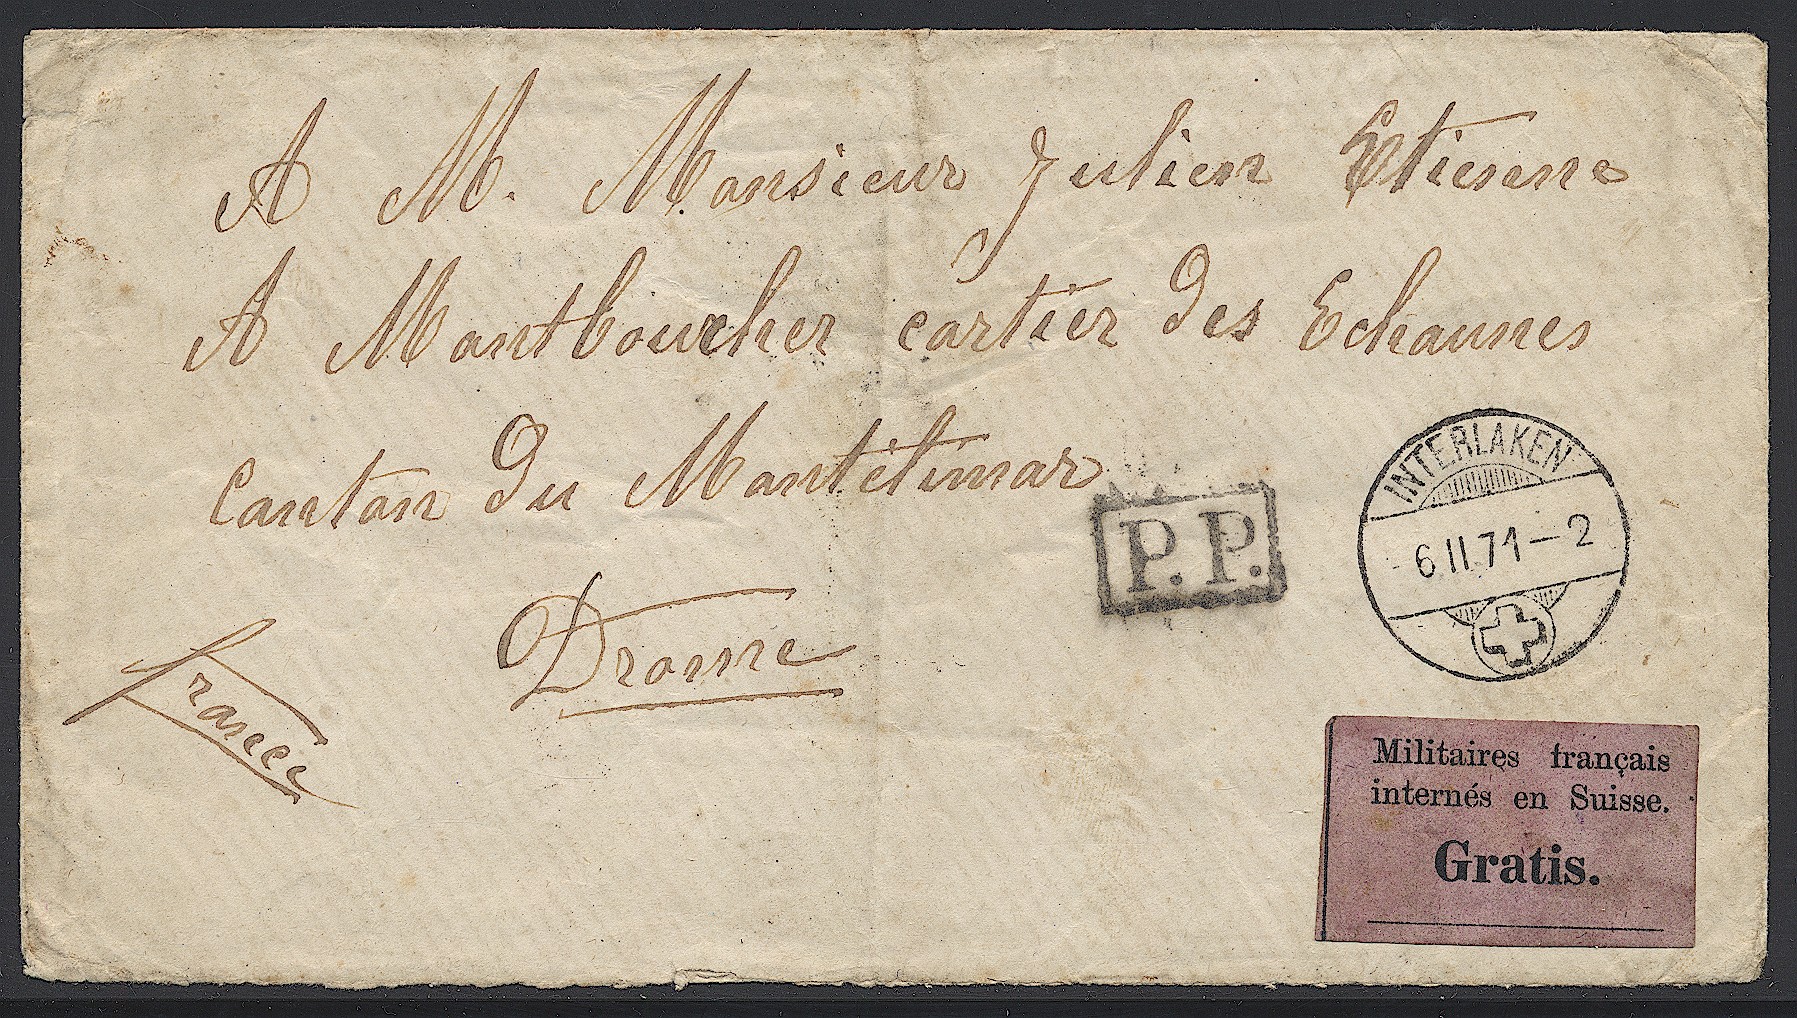 A M. Monsieur Julien Etienne
A Montboucher cartier des Echaunes
Canton du Montélimar
Drome
france
P.P.
INTERLAKEN
6 II 71 - 2
Militaires français
internés en Suisse.
Gratis.